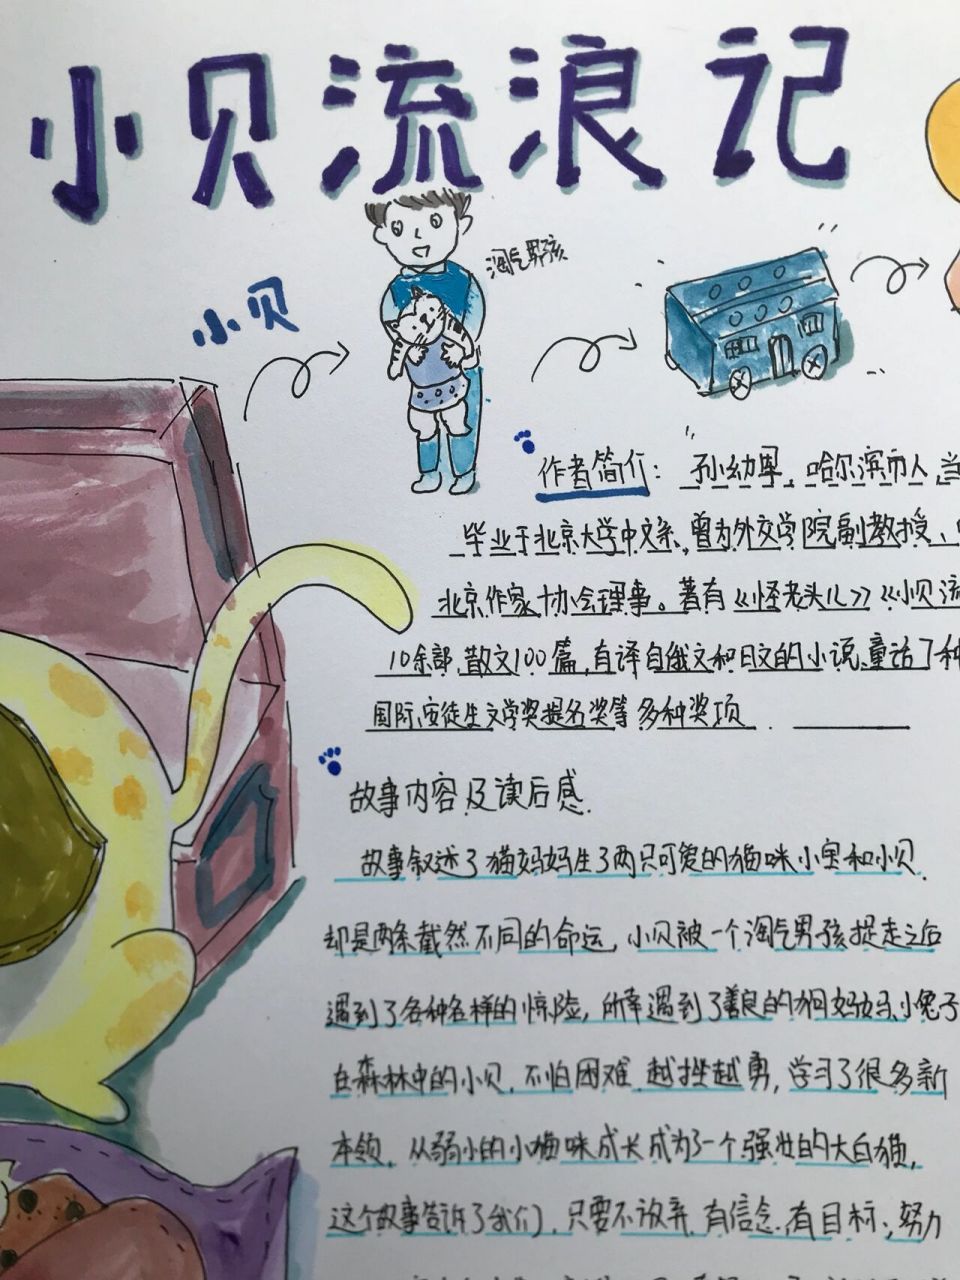 小贝流浪记
淘气男孩
小贝
作者简介: 孙幼军,哈尔滨市人,
毕业于北京大学中文系,曾为外交学院副教授、
北京作家协会理事。著有《怪老头儿》《小贝流
10余部,散文100篇,有译自俄文和日文的小说、童话了种
国际安徒生文学奖提名奖等多种奖项.
故事内容及读后感.
故事叙述了猫妈妈生了两只可爱的猫咪小宝和小贝.
却是两条截然不同的命运,小贝被一个淘气男孩捉走之后
遇到了各种各样的惊险,所幸遇到了善良的狗妈妈、小兔子
在森林中的小贝,不怕困难 越挫越勇,学习了很多新
本领,从弱小的小猫咪成长成为了一个强壮的大白猫,
这个故事告诉了我们,只要不放弃,有信念,有目标,努力